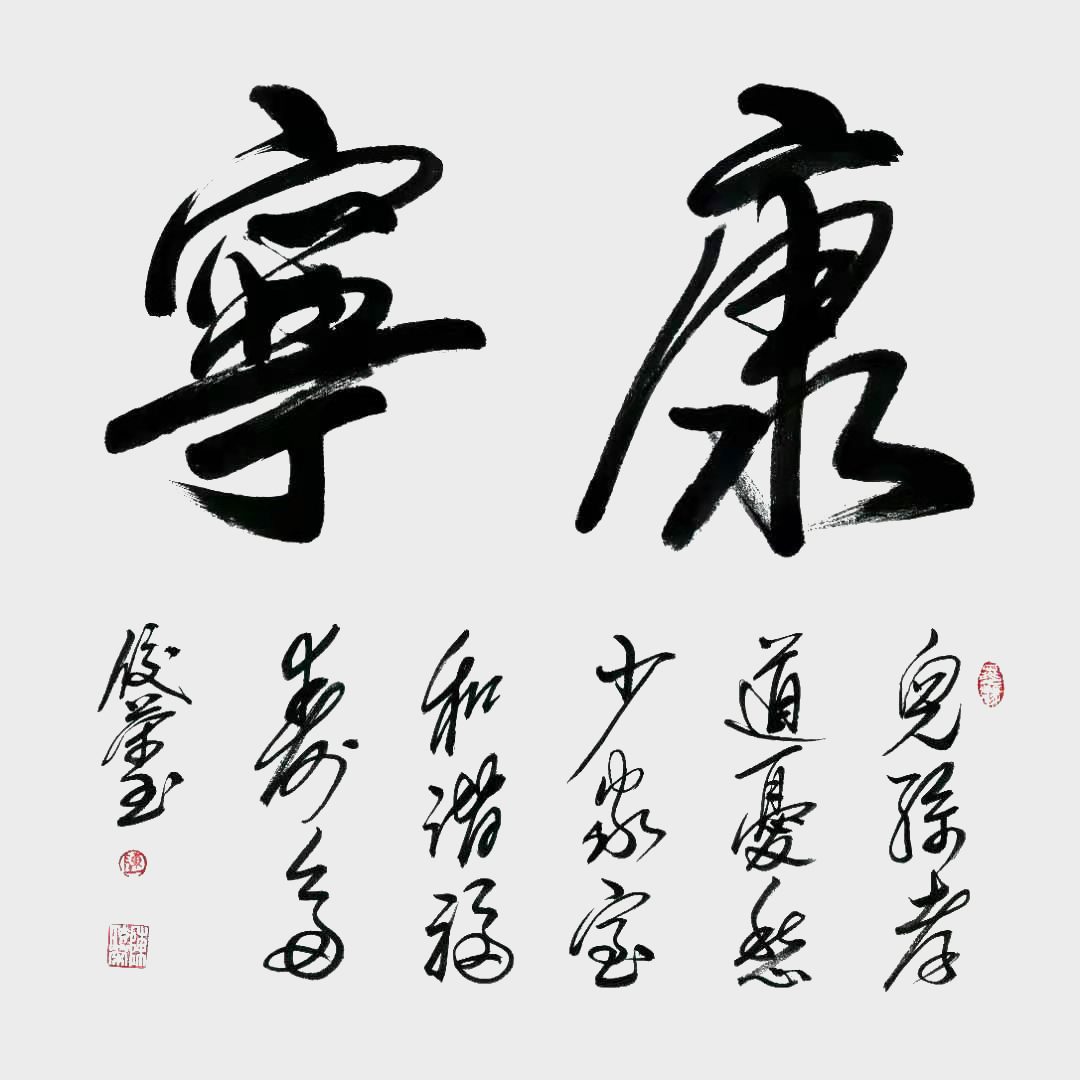 康寧
兒孫孝
道憂愁
少家室
和諧福
壽多
俊榮書
陳